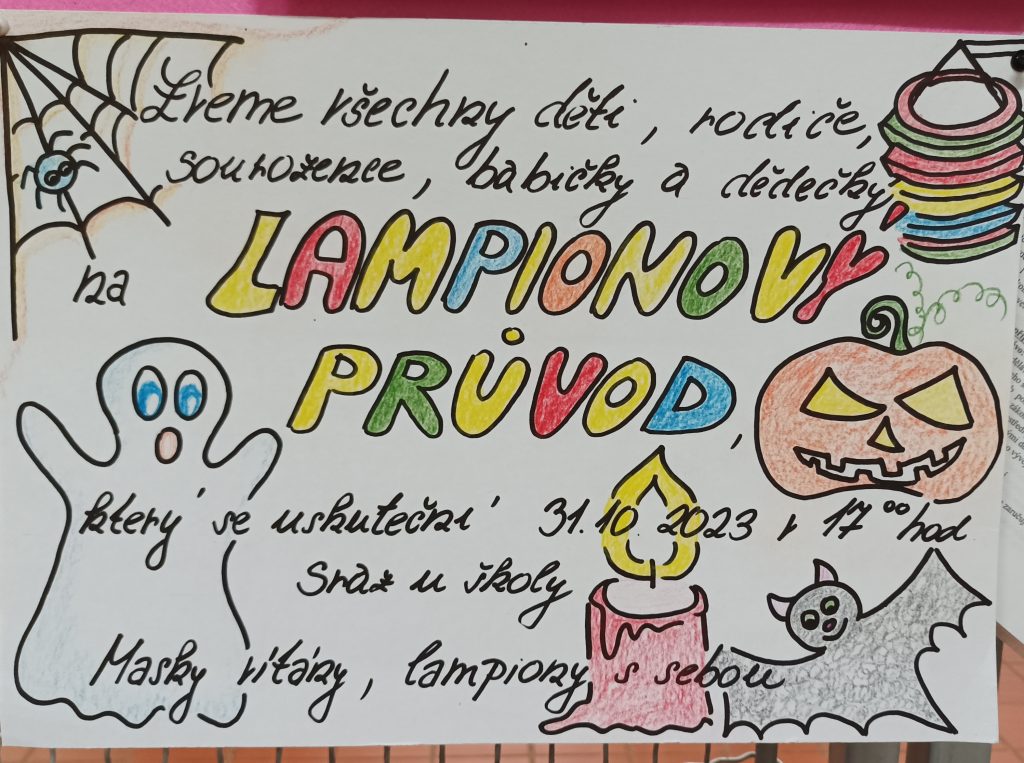 Zveme všechny děti, rodiče,
sourozence, babičky a dědečky
na
LAMPIONOVÝ
PRŮVOD,
který se uskuteční 31.10.2023 v 17⁰⁰ hod
Sraz u školy
Masky vítány, lampiony s sebou